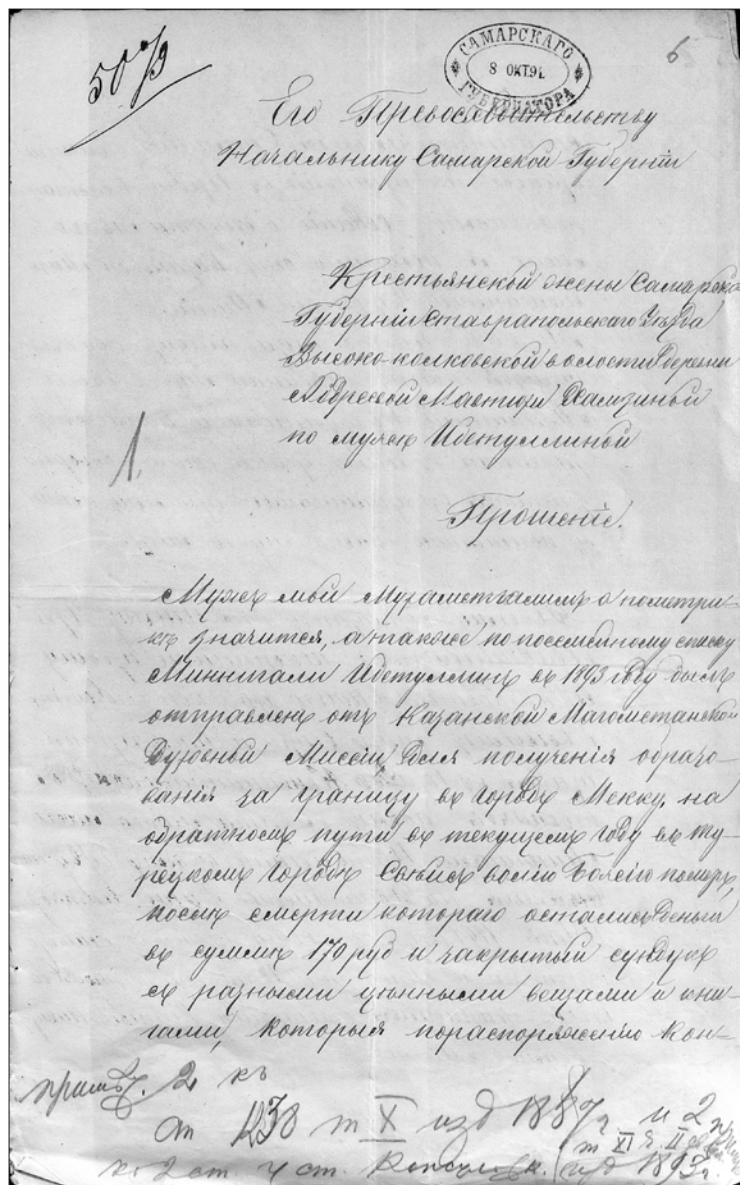 50 %/9
САМАРСКАГО
8 ОКТ.9
ГУБЕРНАТОРА
6
Его Превосходительству
Начальнику Самарской Губерніи
Крестьянской жены Самарской
Губерніи Ставрапольскаго Уѣзда
Высоко-колковской волости деревни
Хамзиной
по мужѣ Ибетуллиной
1,
Прошеніе.
Мужъ мой Мухаметгалимъ а пометри-
кѣ значится, а также по посемейному списку
Миннигали Ибетуллинъ въ 1893 году былъ
отправленъ отъ Казанской Магометанской
Духовной Миссіи для полученія образо-
ванія за границу въ городъ Мекку, на
обратномъ пути въ текущемъ году въ ту-
рецкомъ городѣ волію Божіею померъ,
послѣ смерти котораго остались деньги
въ суммѣ 170 руб и закрытый сундукъ
съ разными цѣнными вещами и кни-
гами, которыя пораспоряженію Кон-
примѣч. 2 къ
ст 1238 т X изд 1887 г и 2
т XI ч. II
ко 2 ст. уст. Консульск. изд 1893 г.